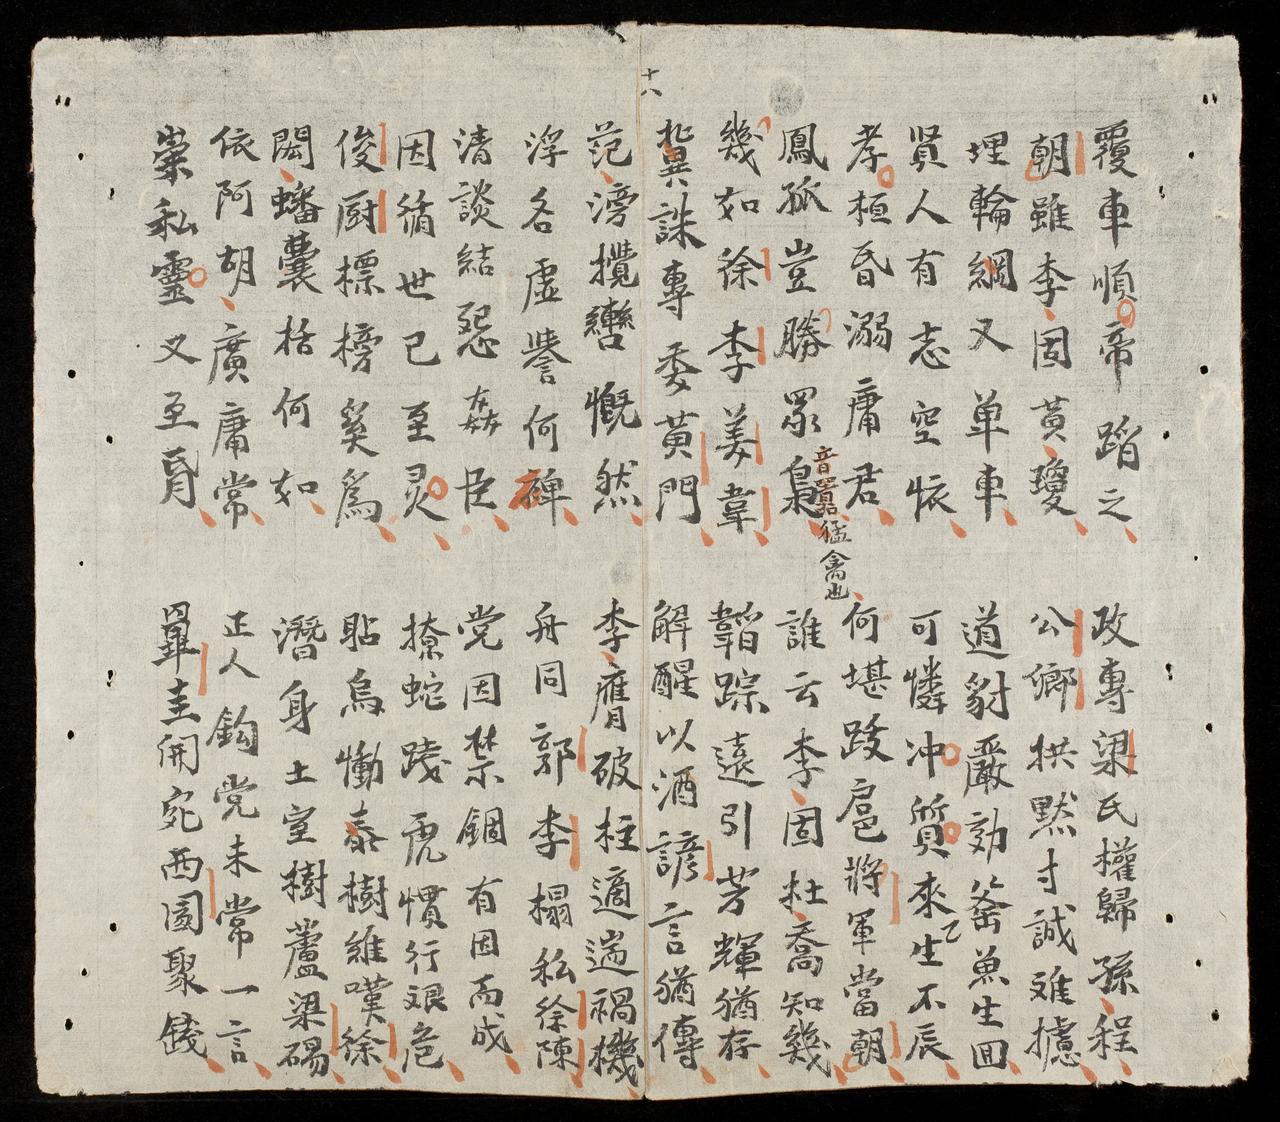 十八
覆車順帝踏之
政專梁氏權歸孫程
朝雖李固黃瓊
公卿拱默寸誠难攄
埋輪綱又单車
道豺嚴効釜魚生囬
賢人有志空恢
可憐冲質來生不辰
孝桓昏溺庸君
何堪跋扈將軍當朝
鳳孤豈勝眾梟
音囂猛禽也
誰云李固杜喬知幾
幾如徐李姜韋
韜踪遠引芳輝猶存
冀誅專委黃門
解酲以酒諺言猶傳
范滂攬轡慨然
李膺破柱適遄禍機
浮名虛譽何裨
舟同郭李榻私徐陳
清談結怨姦臣
党因禁錮有因而成
因循世已至灵
撩蛇踐虎慣行艰危
俊厨標榜奚為
烏慟泰樹維嘆徐
閎蟠囊括何如
潛身土室樹蘆梁碭
依阿胡廣庸常
正人鈎党未常一言
崇私靈又至昏
罼圭開宛西園聚錢